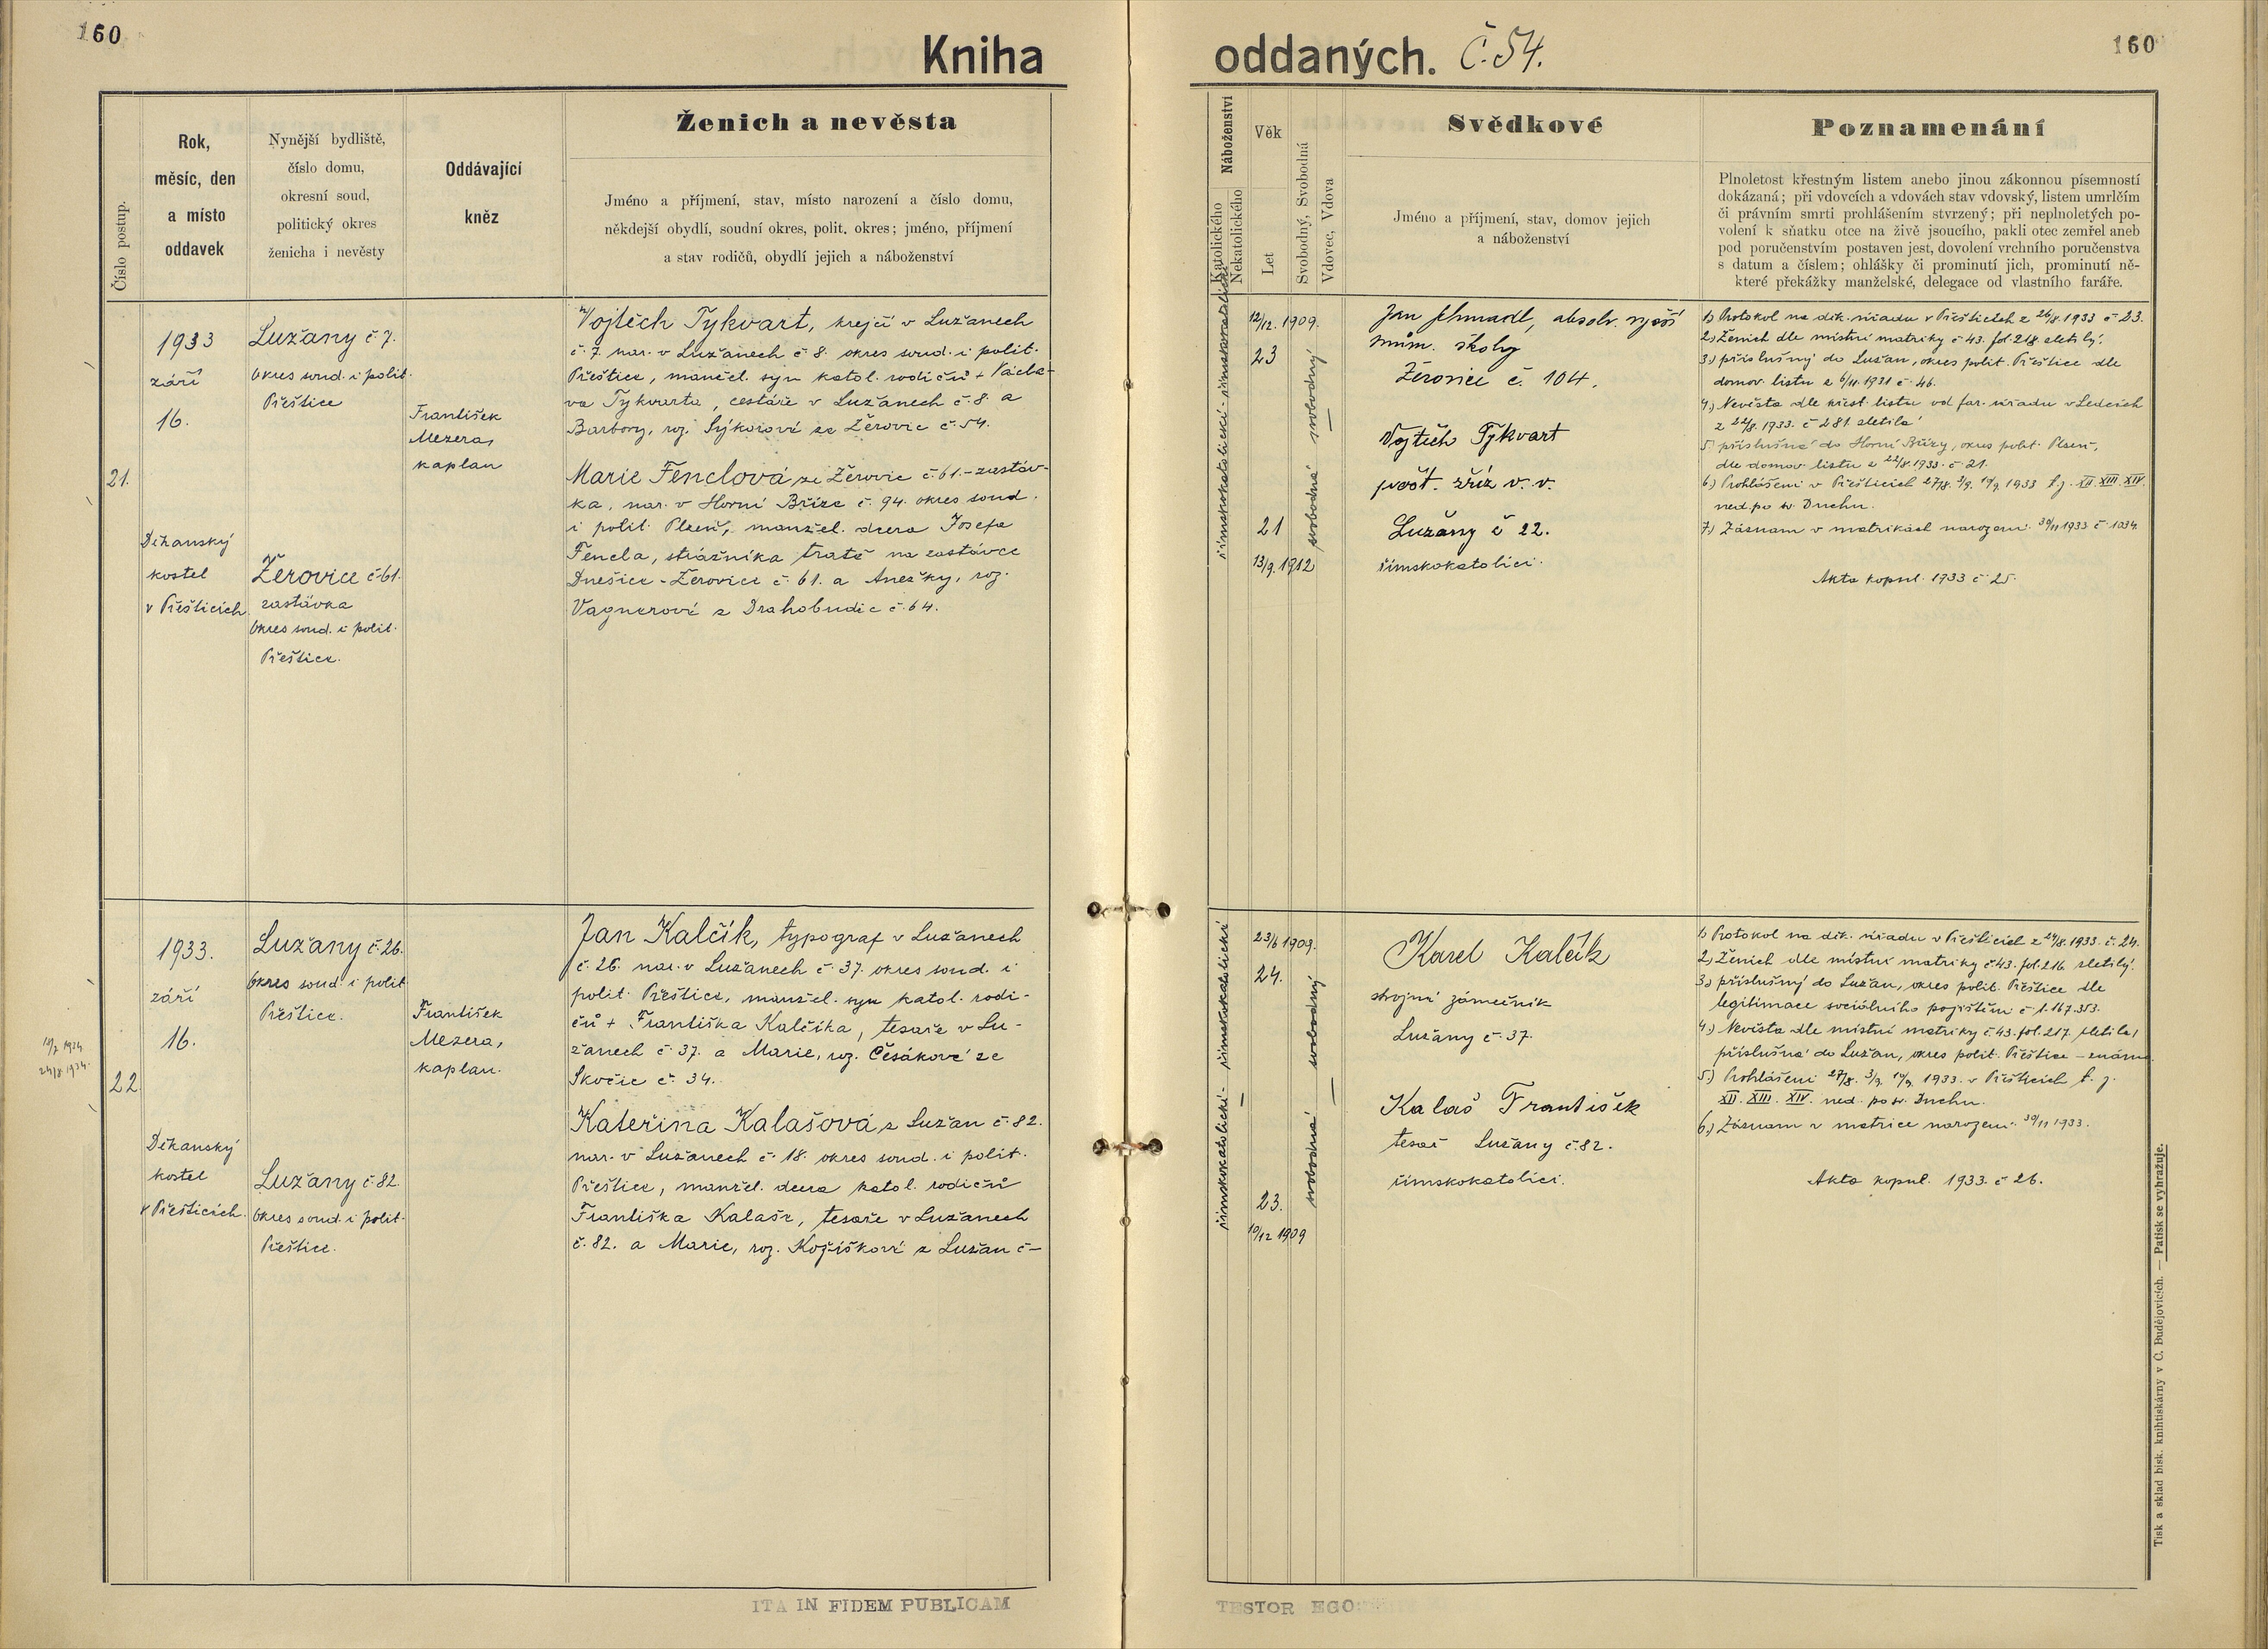 160
Kniha
oddaných. Č. 54.
160
Číslo postup.
Rok,
měsíc, den
a místo
oddavek
Nynější bydliště,
číslo domu,
okresní soud,
politický okres
ženicha i nevěsty
Oddávající
kněz
Ženich a nevěsta
Jméno a příjmení, stav, místo narození a číslo domu,
někdejší obydlí, soudní okres, polit. okres; jméno, příjmení
a stav rodičů, obydlí jejich a náboženství
Náboženství
Katolického
Nekatolického
Věk
Let
Svobodný, Svobodná
Vdovec, Vdova
Svědkové
Jméno a příjmení, stav, domov jejich
a náboženství
Poznamenání
Plnoletost křestným listem anebo jinou zákonnou písemností
dokázaná; při vdovcích a vdovách stav vdovský, listem umrlčím
či právním smrti prohlášením stvrzený; při neplnoletých po-
volení k sňatku otce na živě jsoucího, pakli otec zemřel aneb
pod poručenstvím postaven jest, dovolení vrchního poručenstva
s datum a číslem; ohlášky či prominutí jich, prominutí ně-
které překážky manželské, delegace od vlastního faráře.
21.
1933
září
16.
Děkanský
kostel
v Přešticích.
Lužany č 7.
okres soud. i polit.
Přeštice
Žerovice č 61.
zastávka
okres soud. i polit.
Přeštice.
František
Mezera,
kaplan
Vojtěch Tykvart, krejčí v Lužanech
č. 7. nar. v Lužanech č 8. okres soud. i polit.
Přeštice, manžel. syn katol. rodičů + Václa-
va Tykvarta, cestáře v Lužanech č. 8. a
Barbory, roz. Sýkorové ze Žerovic č. 54.
Marie Fenclová ze Žerovic č. 61. - zastáv-
ka, nar. v Horní Bříze č. 94. okres soud.
i polit. Plzeň, manžel. dcera Josefa
Fencla, strážníka tratě na zastávce
Dnešice - Žerovice č. 61. a Anežky, roz.
Vagnerové z Drahobudic č. 64.
římskokatolická - římskokatolické
12/12. 1909.
23
21
13/9. 1912
svobodná svobodný
Jan Schmadl, absolv. vyšší
prům. školy
Žerovice č. 104.
Vojtěch Tykvart
pošt. zříz v. v.
Lužany č 22.
římskokatolíci.
1) Protokol na děk. úřadu v Přešticích z 26/8. 1933 č 23.
2.) Ženich dle místní matriky č 43. fol. 218. zletilý.
3.) příslušný do Lužan, okres polit. Přeštice dle
domov. listu z 6/11. 1931 č. 46.
4.) Nevěsta dle křest. listu od far. úřadu v Ledcích
z 22/8. 1933. č 281. zletilá
5. příslušná do Horní Břízy, okres polit. Plzeň,
dle domov. listu z 22/8. 1933. č. 21.
6.) Prohlášeni v Přešticích 27/8. 3/9. 10/9. 1933 t. j. XII. XIII. XIV.
ned. po sv. Duchu.
7.) Záznam v matrikách narození 30/11 1933 č. 1034.
Akta kopul. 1933 č 25.
22.
1933.
září
16.
Děkanský
kostel
v Přešticích.
Lužany č 26.
okres soud. i polit.
Přeštice.
Lužany č 82.
okres soud. i polit.
Přeštice.
František
Mezera,
kaplan.
Jan Kalčík, typograf v Lužanech
č. 26. nar. v Lužanech č. 37. okres soud. i
polit. Přeštice, manžel. syn katol. rodi-
čů + Františka Kalčíka, tesaře v Lu-
žanech č. 37. a Marie, roz. Česákové ze
Skočic č. 34.
Kateřina Kalašová z Lužan č. 82.
nar. v Lužanech č. 18. okres soud. i polit.
Přeštice, manžel. dcera katol. rodičů
Františka Kalaše, tesaře v Lužanech
č. 82. a Marie, roz. Kožíškové z Lužan č-
římskokatolická - římskokatolické
23/6 1909.
24.
23.
10/12 1909
svobodná svobodný
Karel Kalčík
strojní zámečník
Lužany č. 37.
Kalaš František
tesař Lužany č 82.
římskokatolíci.
1) Protokol na děk. úřadu v Přešticích z 24/8. 1933. č. 24.
2.) Ženich dle místní matriky č. 43. fol. 216 zletilý.
3.) příslušný do Lužan, okres polit. Přeštice dle
legitimace sociálního pojištění č 1.167.353.
4.) Nevěsta dle místní matriky č. 43. fol. 217. zletilá,
příslušná do Lužan, okres polit. Přeštice -
5.) Prohlášeni 27/8. 3/9. 10/9. 1933. v Přešticích t. j.
XII. XIII. XIV. ned. po sv. Duchu.
6.) Záznam v matrice narození 30/11 1933.
Akta kopul. 1933. č 26.
ITA IN FIDEM PUBLICAM
TESTOR EGO
Tisk a sklad bisk. knihtiskárny v Č. Budějovicích. — Patisk se vyhražuje.